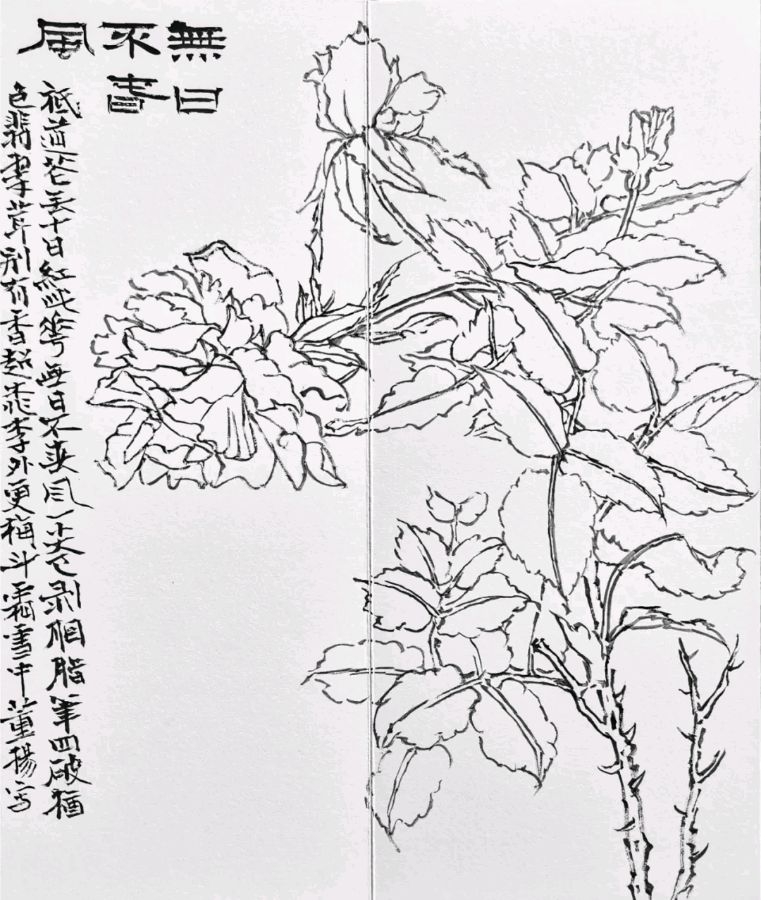 無日
不春
風
祇道花無十日紅此花無日不春風一尖已剥胭脂筆四破猶
包翡翠茸别有香超桃李外更梅斗霜雪中董揚寫